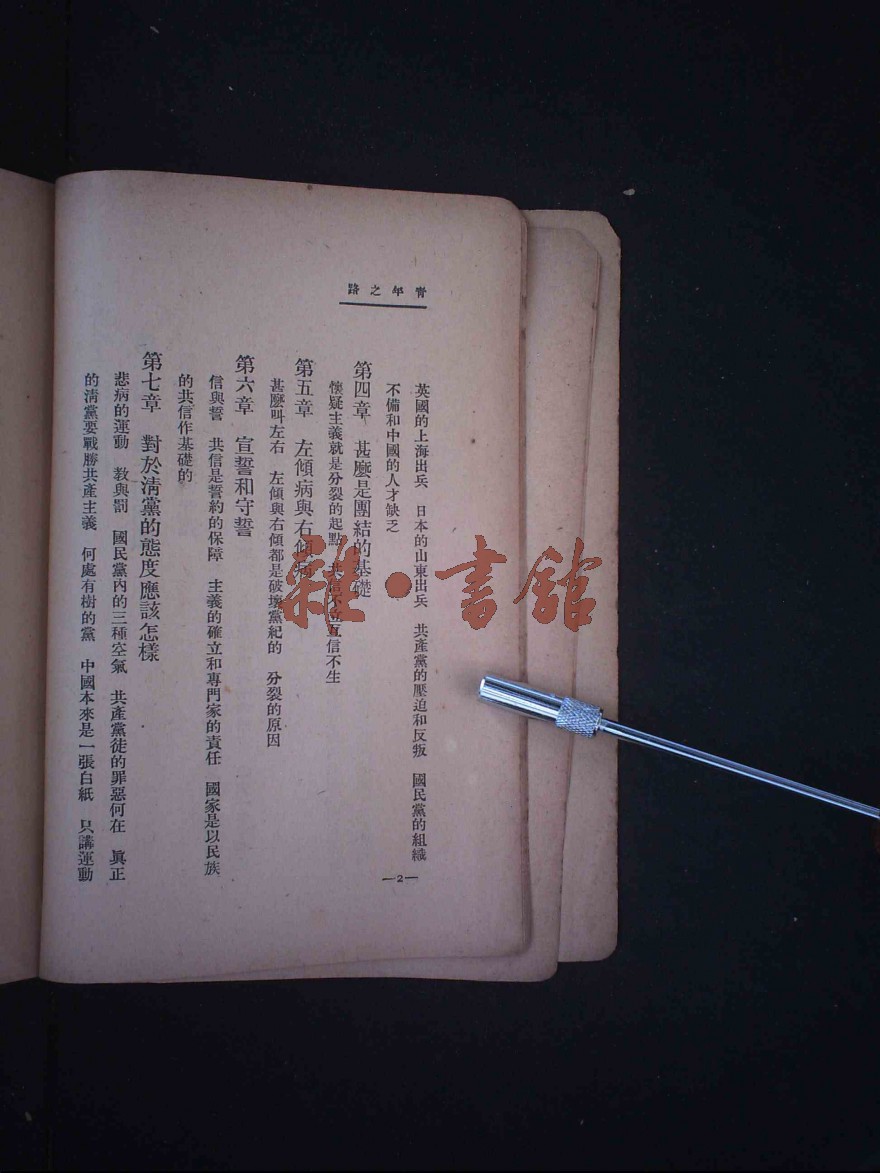 青年之路
英國的上海出兵　日本的山東出兵　共產黨的壓迫和反叛　國民黨的組織
不備和中國的人才缺乏
第四章　甚麼是團結的基礎
懷疑主義就是分裂的起點　共信不立互信不生
第五章　左傾病與右傾病
甚麼叫左右　左傾與右傾都是破壞黨紀的　分裂的原因
第六章　宣誓和守誓
信與誓　共信是誓約的保障　主義的確立和專門家的責任　國家是以民族
的共信作基礎的
第七章　對於清黨的態度應該怎樣
悲病的運動　教與罰　國民黨內的三種空氣　共產黨徒的罪惡何在　眞正
的清黨要戰勝共產主義　何處有樹的黨　中國本來是一張白紙　只講運動
—2—
雜·書館